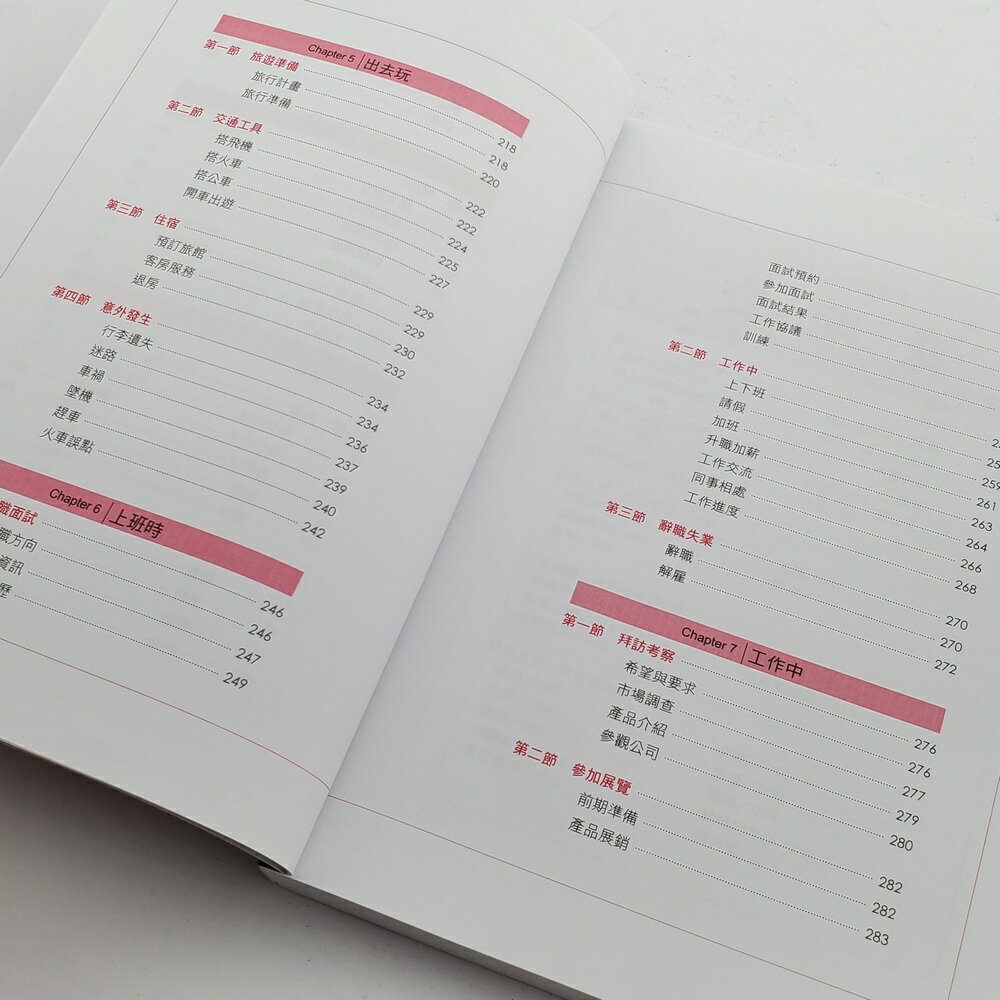 Chapter 5 出去玩
第一節 旅遊準備 218
旅行計畫 218
旅行準備 220
第二節 交通工具 222
搭飛機 222
搭火車 224
搭公車 225
開車出遊 227
第三節 住宿 229
預訂旅館 229
客房服務 230
退房 232
第四節 意外發生 234
行李遺失 234
迷路 236
車禍 237
墜機 239
趕車 240
火車誤點 242
Chapter 6 上班時
職面試 246
職方向 246
資訊 247
歷 249
面試預約
參加面試
面試結果
工作協議
訓練
第二節 工作中
上下班
請假 259
加班 261
升職加薪 263
工作交流 264
同事相處 266
工作進度 268
第三節 辭職失業 270
辭職 270
解雇 272
Chapter 7 工作中
第一節 拜訪考察 276
希望與要求 276
市場調查 277
產品介紹 279
參觀公司 280
第二節 參加展覽 282
前期準備 282
產品展銷 283